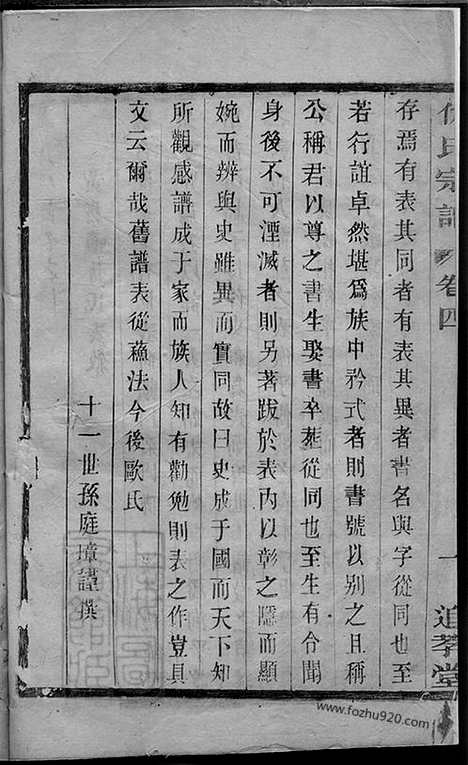 氏宗譜 卷四 一 追孝堂
存焉有表其同者有表其異者書名與字從同也至
若行誼卓然堪為族中矜式者則書號以別之且稱
公稱君以尊之書生娶書卒葬從同也至生有令聞
身後不可湮滅者則另著跋於表內以彰之隱而顯
婉而辨與史雖異而實同故曰史成于國而天下知
所觀感譜成于家而族人知有勸勉則表之作豈具
文云爾哉舊譜表從蘓法今後歐氏
十一世孫庭璋謹撰
www.fozhu920.com